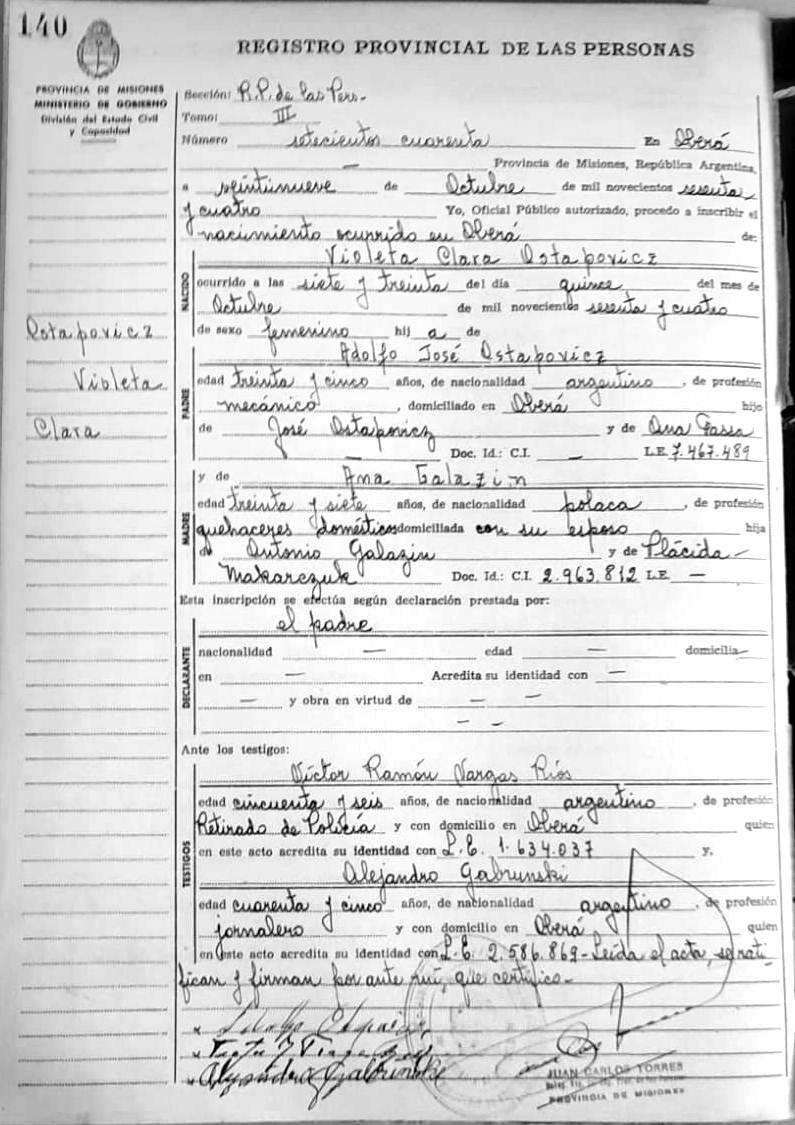 140
REGISTRO PROVINCIAL DE LAS PERSONAS
PROVINCIA DE MISIONES
MINISTERIO DE GOBIERNO
División del Estado Civil
y Capacidad
Sección: R.P. de las Pers.-
Tomo: III
Número setecientos cuarenta En Oberá
— Provincia de Misiones, República Argentina,
a veintinueve de Octubre de mil novecientos sesenta
y cuatro Yo, Oficial Público autorizado, procedo a inscribir el
nacimiento ocurrido en Oberá de:
NACIDO
Violeta Clara Ostapovicz
ocurrido a las siete y treinta del día quince del mes de
Octubre de mil novecientos sesenta y cuatro
de sexo femenino hij a de
Ostapovicz
Violeta
Clara
PADRE
Adolfo José Ostapovicz
edad treinta y cinco años, de nacionalidad argentino, de profesión
mecánico, domiciliado en Oberá hijo
de José Ostapovicz y de Ana Gassa
— Doc. Id.: C.I. — L.E. 7.467.489
MADRE
y de Ana Galazin
edad treinta y siete años, de nacionalidad polaca, de profesión
quehaceres domésticos domiciliada con su esposo hija
de Antonio Galazin y de Plácida -
Makarczuk Doc. Id.: C.I. 2.963.812 L.E. —
Esta inscripción se efectúa según declaración prestada por:
DECLARANTE
el padre
nacionalidad — edad — domicilia—
en — Acredita su identidad con —
— y obra en virtud de — —
— —
Ante los testigos:
TESTIGOS
Víctor Ramón Vargas Ríos
edad cincuenta y seis años, de nacionalidad argentino, de profesión
Retirado de Policía y con domicilio en Oberá quien
en este acto acredita su identidad con L.E. 1.634.037 y,
Alejandro Gabrunski
edad cuarenta y cinco años, de nacionalidad argentino, de profesión
jornalero y con domicilio en Oberá quien
en este acto acredita su identidad con L.E. 2.586.869 - Leída el acta, se rati
fican y firman por ante mí, que certifico.-
JUAN CARLOS TORRES
PROVINCIA DE MISIONES